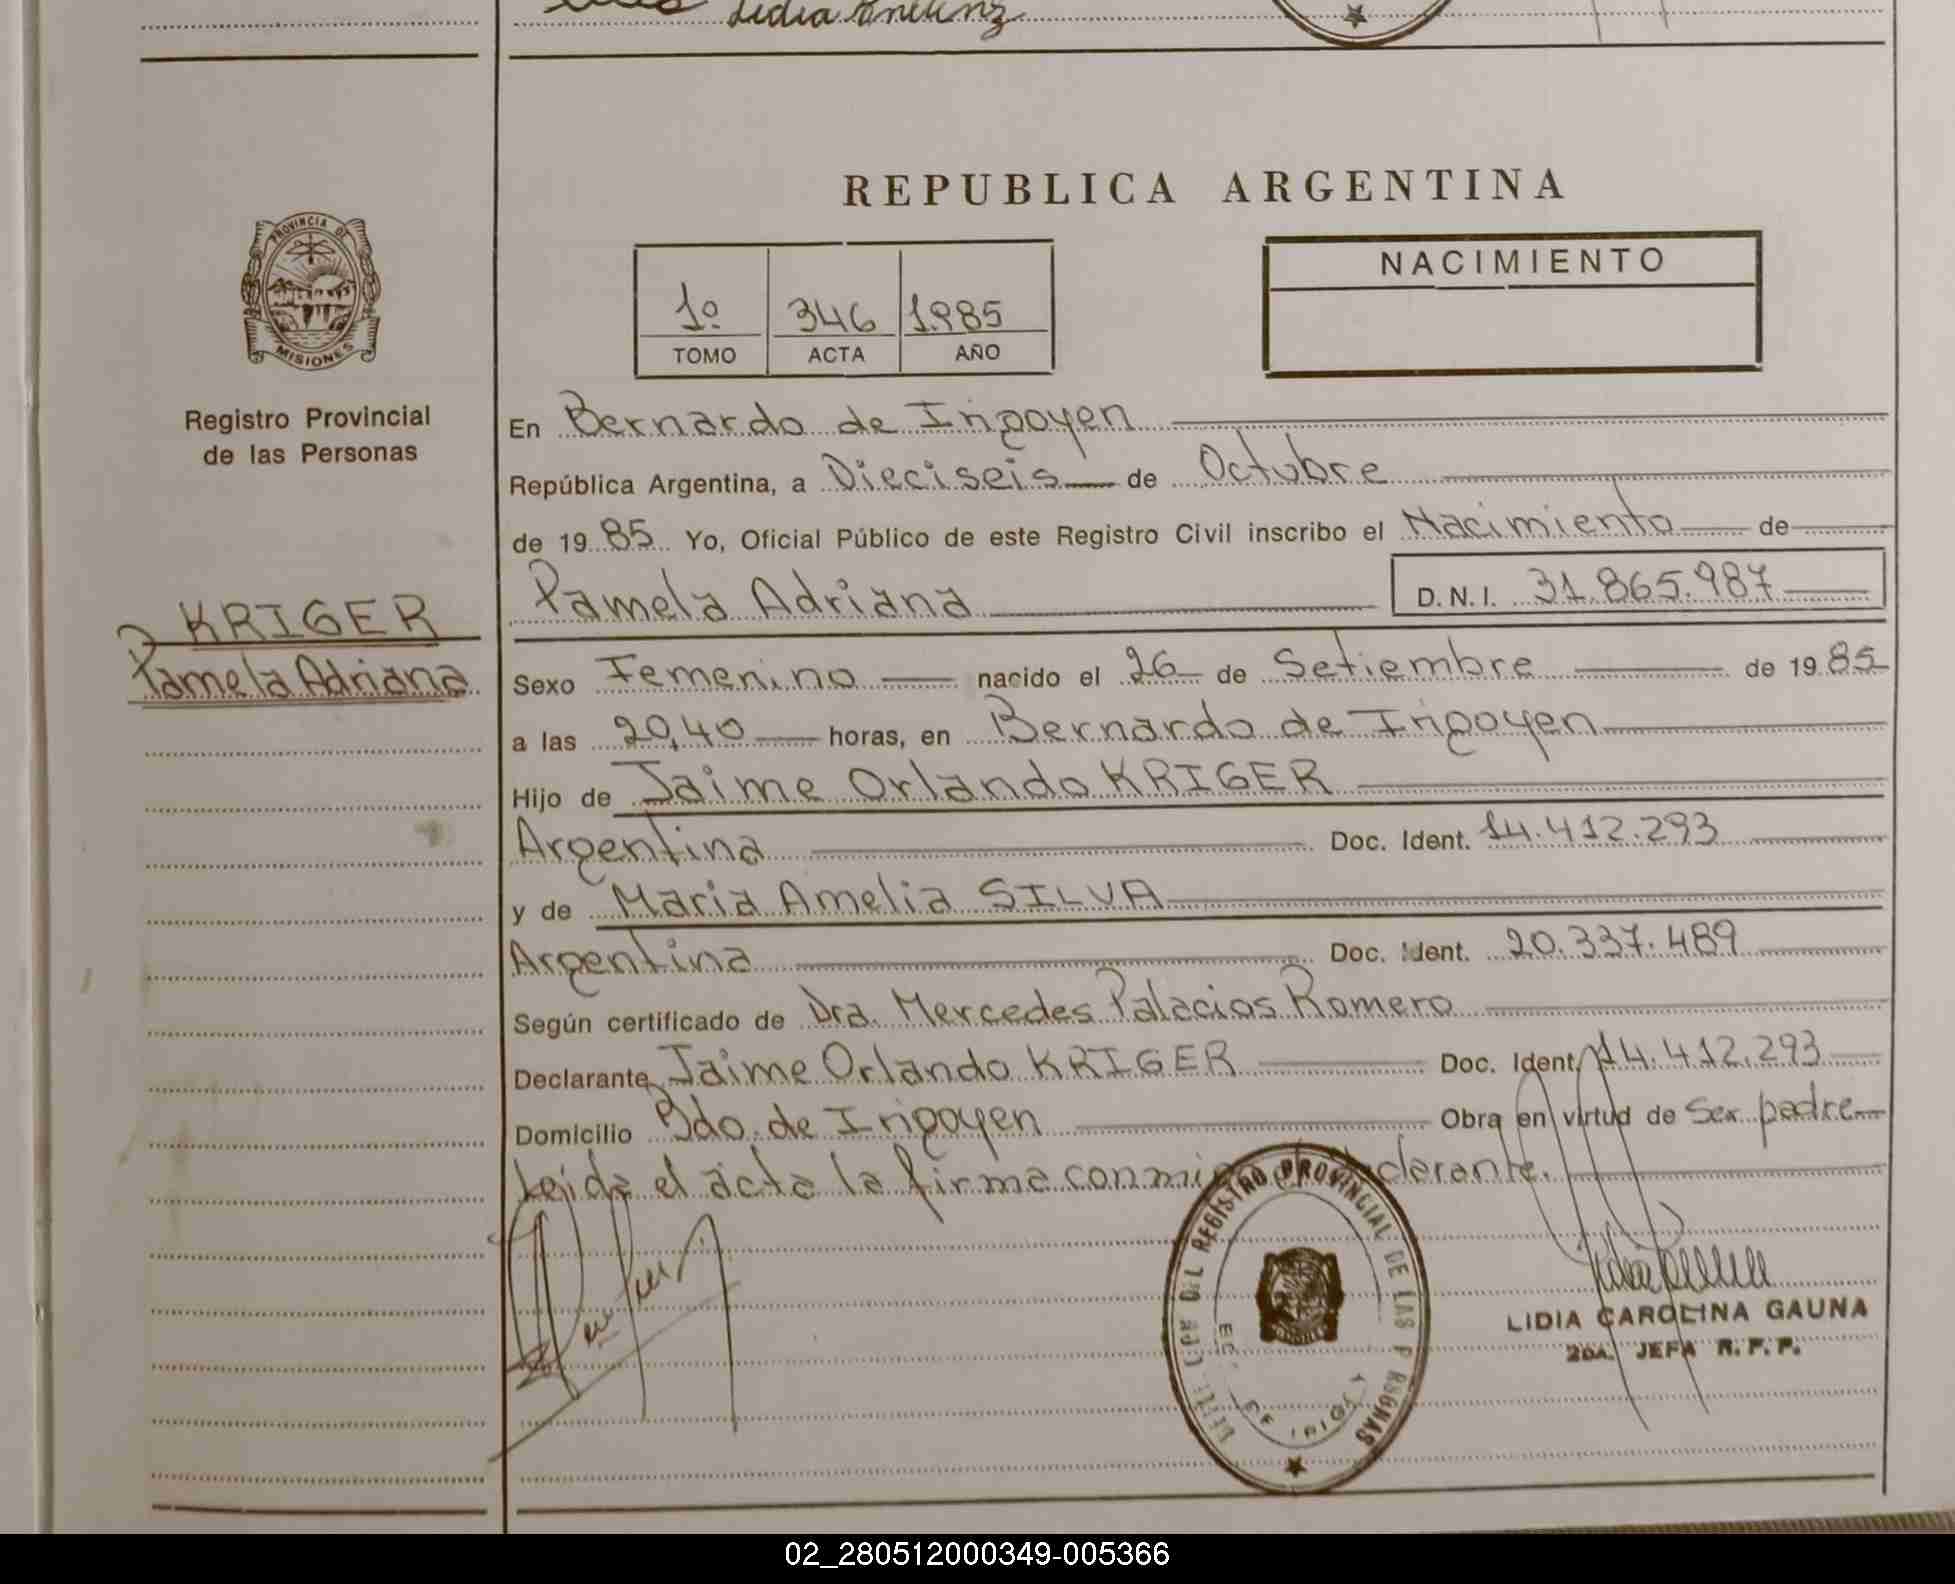 Lidia
REPUBLICA ARGENTINA
PROVINCIA DE
MISIONES
Registro Provincial
de las Personas
KRIGER
Pamela Adriana
1º 346 1985
TOMO ACTA AÑO
NACIMIENTO
En Bernardo de Irigoyen
República Argentina, a Dieciseis de Octubre
de 1985 Yo, Oficial Público de este Registro Civil inscribo el Nacimiento de
Pamela Adriana D.N.I. 31.865.987
Sexo Femenino nacido el 26 de Setiembre de 1985
a las 20,40 horas, en Bernardo de Irigoyen
Hijo de Jaime Orlando KRIGER
Argentina Doc. Ident. 14.412.293
y de Maria Amelia SILVA
Argentina Doc. Ident. 20.337.489
Según certificado de Dra. Mercedes Palacios Romero
Declarante Jaime Orlando KRIGER Doc. Ident. 14.412.293
Domicilio Bdo. de Irigoyen Obra en virtud de Ser padre
Leida el acta la firma conmigo el declarante.
REGISTRO PROVINCIAL DE LAS PERSONAS
LIDIA CAROLINA GAUNA
2DA. JEFA R.P.P.
02_280512000349-005366